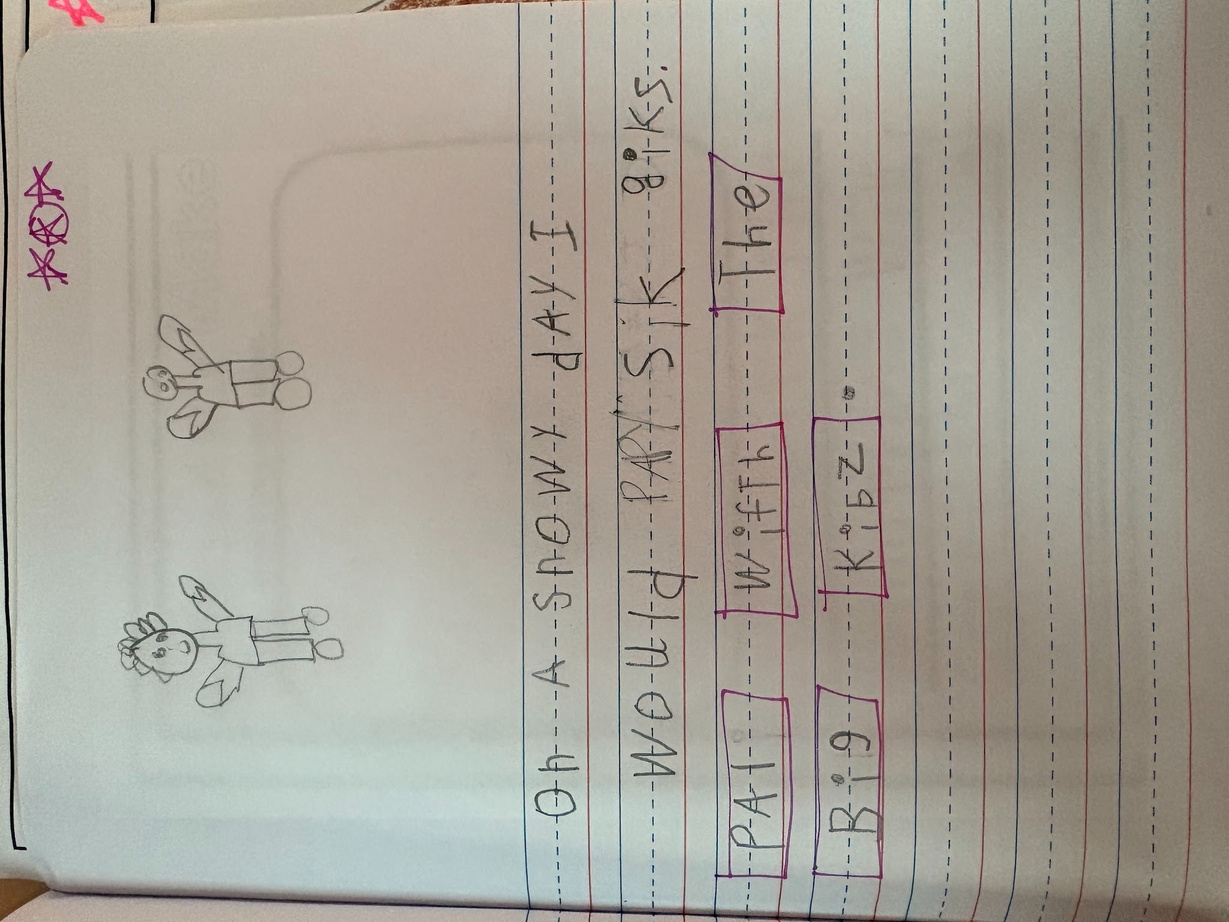 On A SnOWY dAY I
WOuld PAPY Sik giks.
PAl WifTh The
Big Kibz.